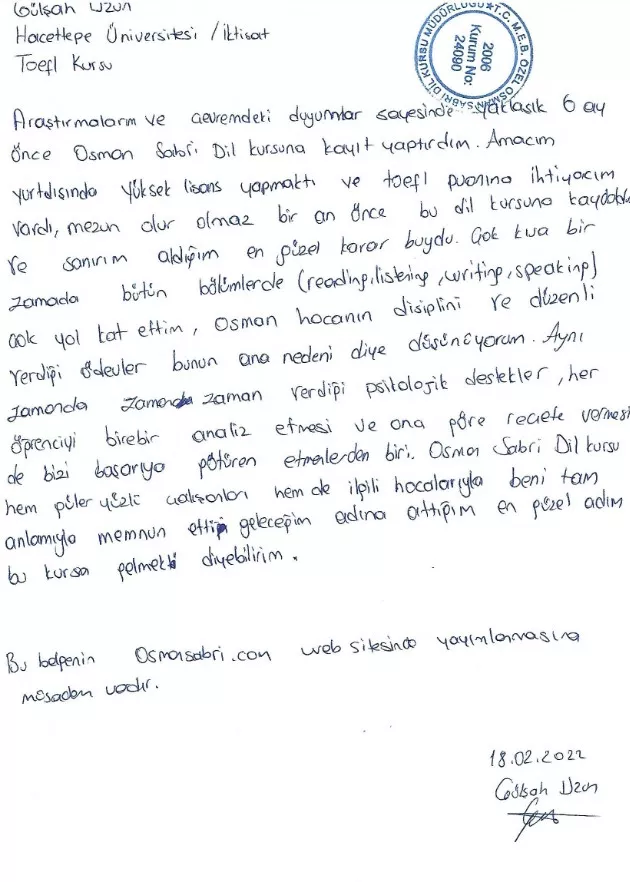 Gülşah Uzun
Hacettepe Üniversitesi / İktisat
Toefl Kursu
OSMAN SABRİ DİL KURSU MÜDÜRLÜĞÜ ★ T.C. M.E.B. ÖZEL
2006
Kurum No:
24090
Araştırmalarım ve çevremdeki duyumlar sayesinde yaklaşık 6 ay
önce Osman Sabri Dil kursuna kayıt yaptırdım. Amacım
yurtdışında yüksek lisans yapmaktı ve toefl puanına ihtiyacım
vardı, mezun olur olmaz bir an önce bu dil kursuna kaydoldum
ve sanırım aldığım en güzel karar buydu. Çok kısa bir
zamada bütün bölümlerde (reading, listening, writing, speaking)
çok yol kat ettim, Osman hocanın disiplini ve düzenli
verdiği ödevler bunun ana nedeni diye düşünüyorum. Aynı
zamanda zaman verdiği psikolojik destekler, her
öğrenciyi birebir analiz etmesi ve ona göre reçete vermesi
de bizi başarıya götüren etmenlerden biri. Osman Sabri Dil kursu
hem güler yüzlü çalışanları hem de ilgili hocalarıyla beni tam
anlamıyla memnun etti geleceğim adına attığım en güzel adım
bu kursa gelmekti diyebilirim.
Bu belgenin Osmansabri.com web sitesinde yayımlamasına
müsadem vardır.
18.02.2022
Gülşah Uzun